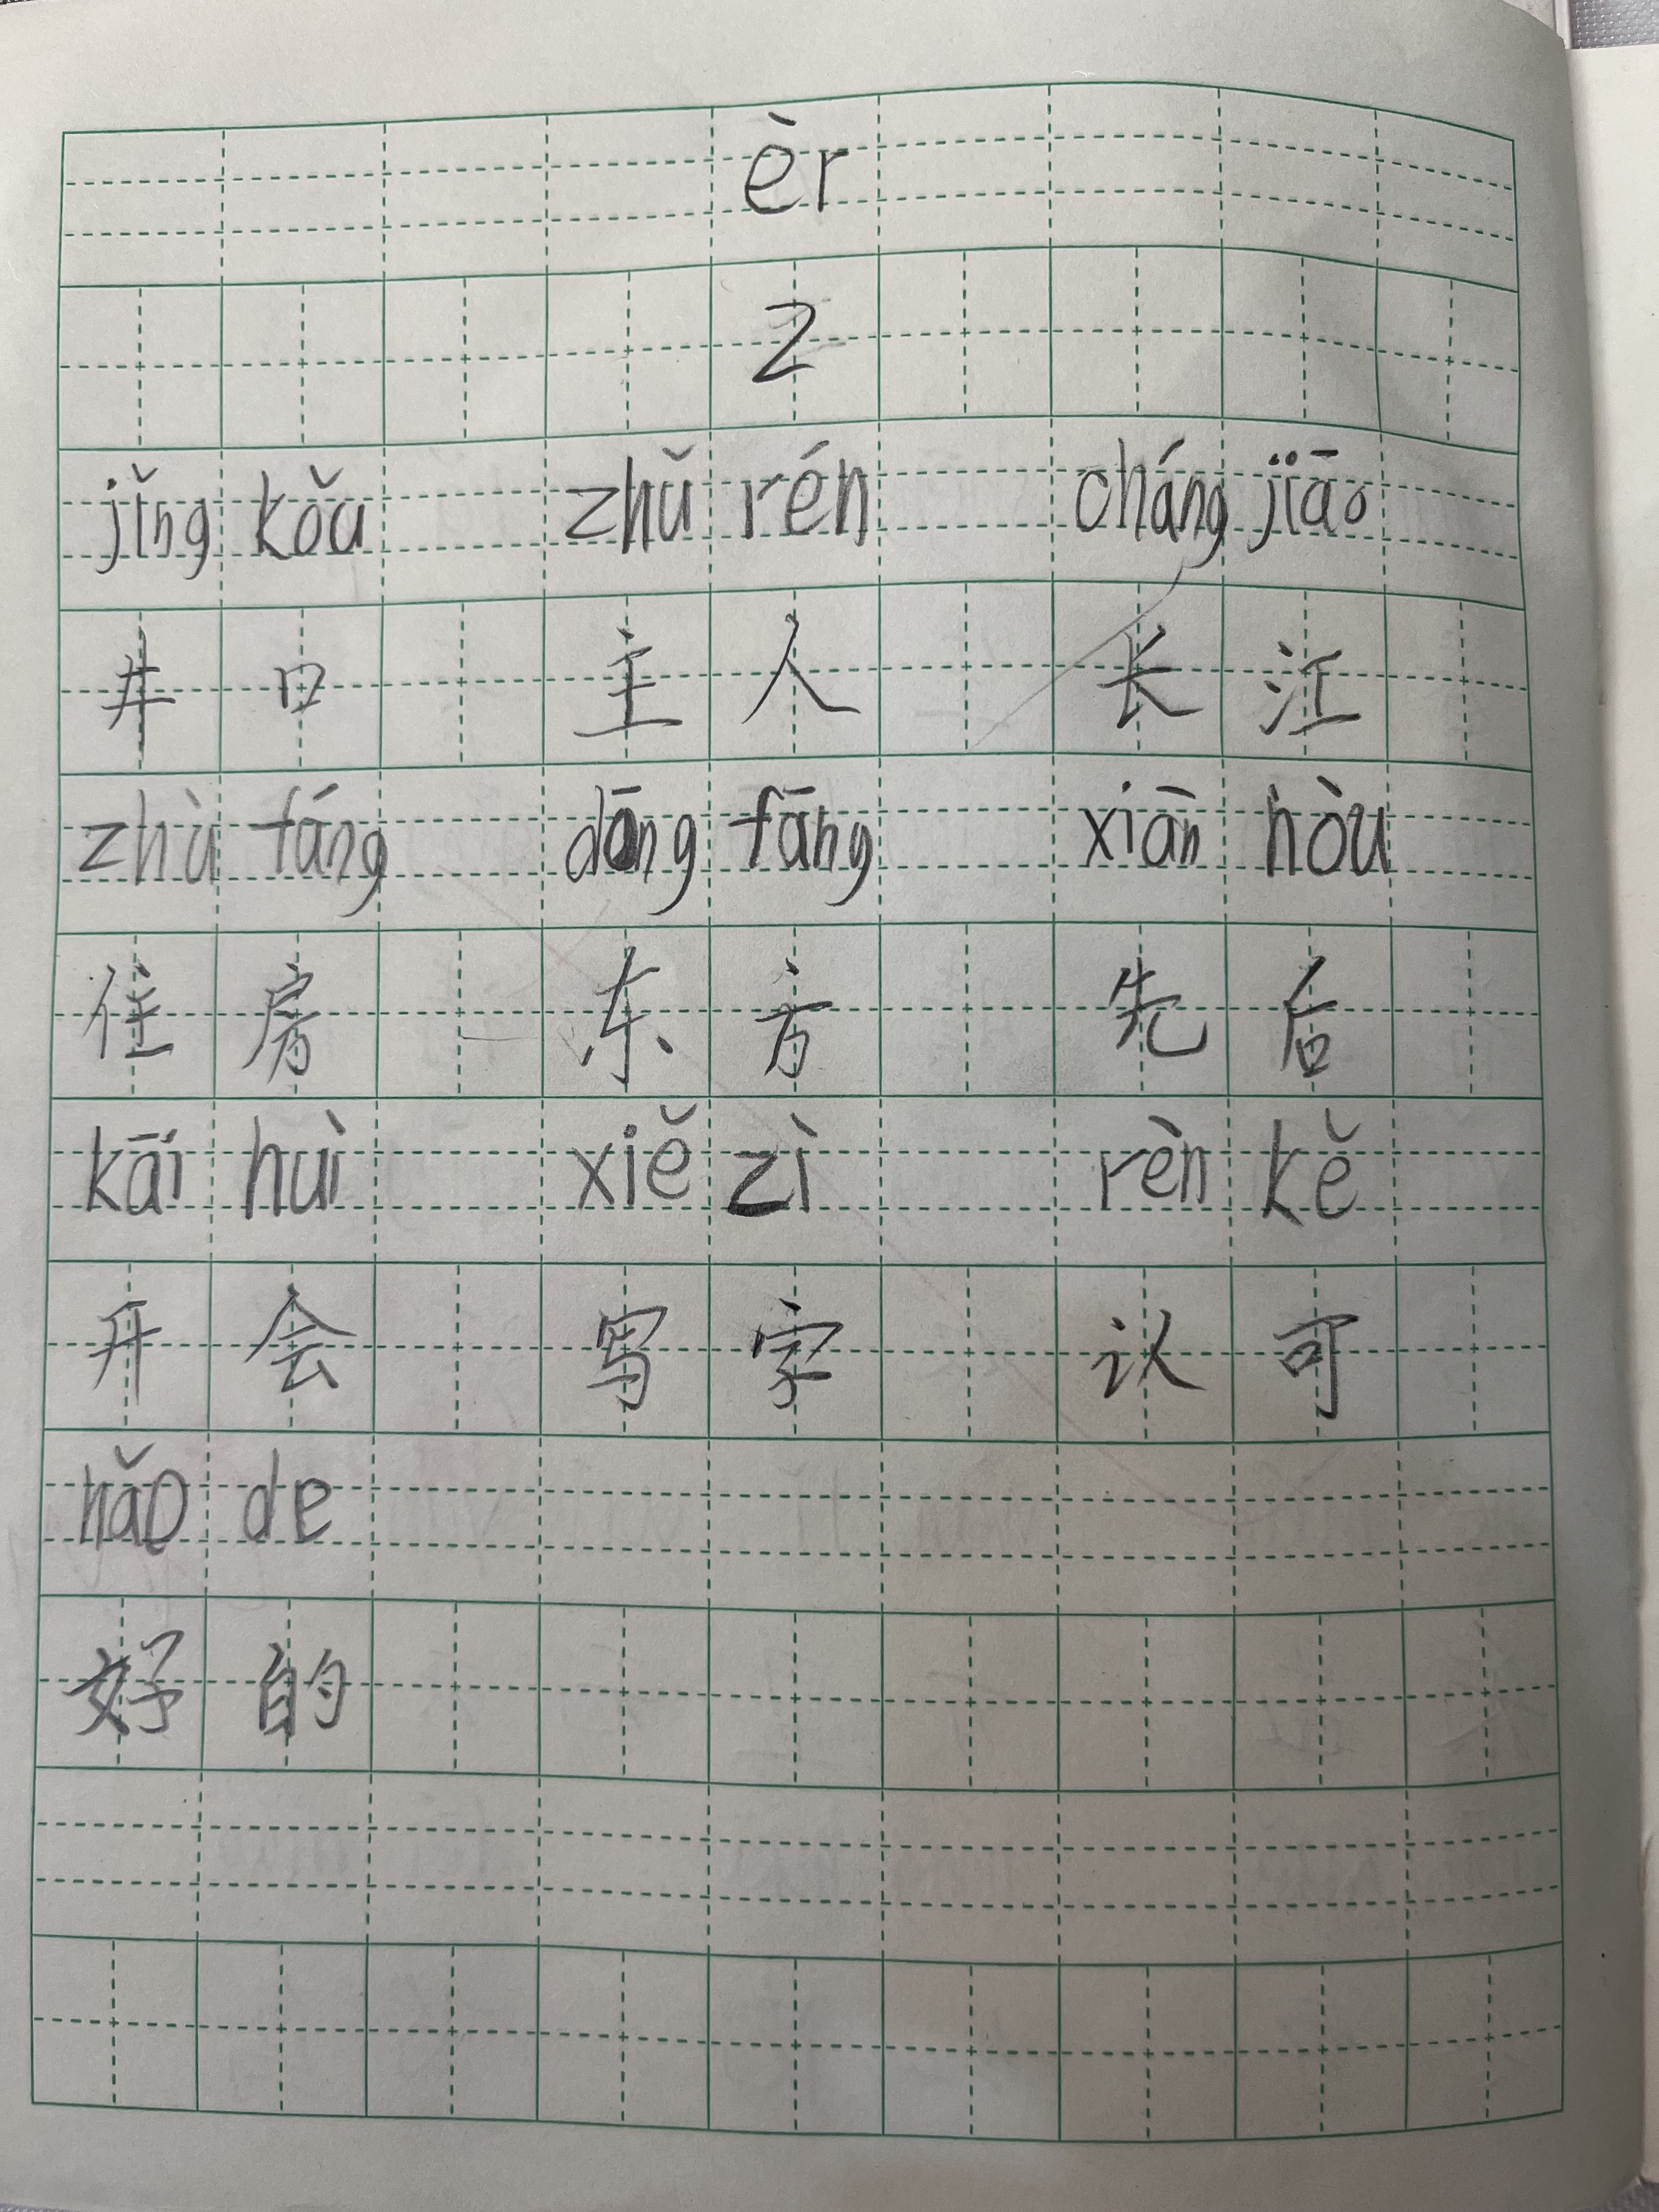 èr
2
jǐng kǒu zhǔ rén cháng jiāo
井口 主人 长江
zhù fáng dōng fāng xiān hòu
住房 东方 先后
kāi huì xiě zì rèn kě
开会 写字 认可
hǎo de
好的